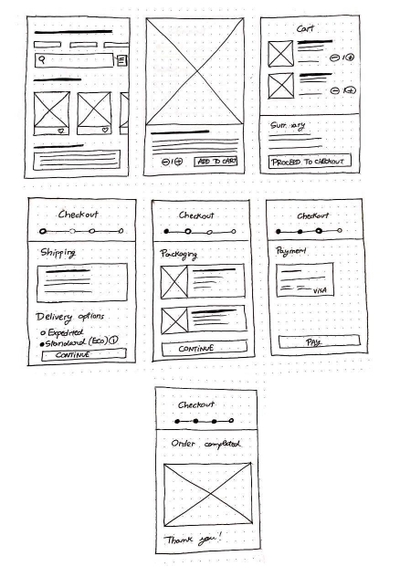 1
ADD TO CART
Cart
1
1
Summary
PROCEED TO CHECKOUT
Checkout
Shipping
Delivery options
Expedited
Standard (Eco) i
CONTINUE
Checkout
Packaging
CONTINUE
Checkout
Payment
VISA
PAY
Checkout
Order completed
Thank you!